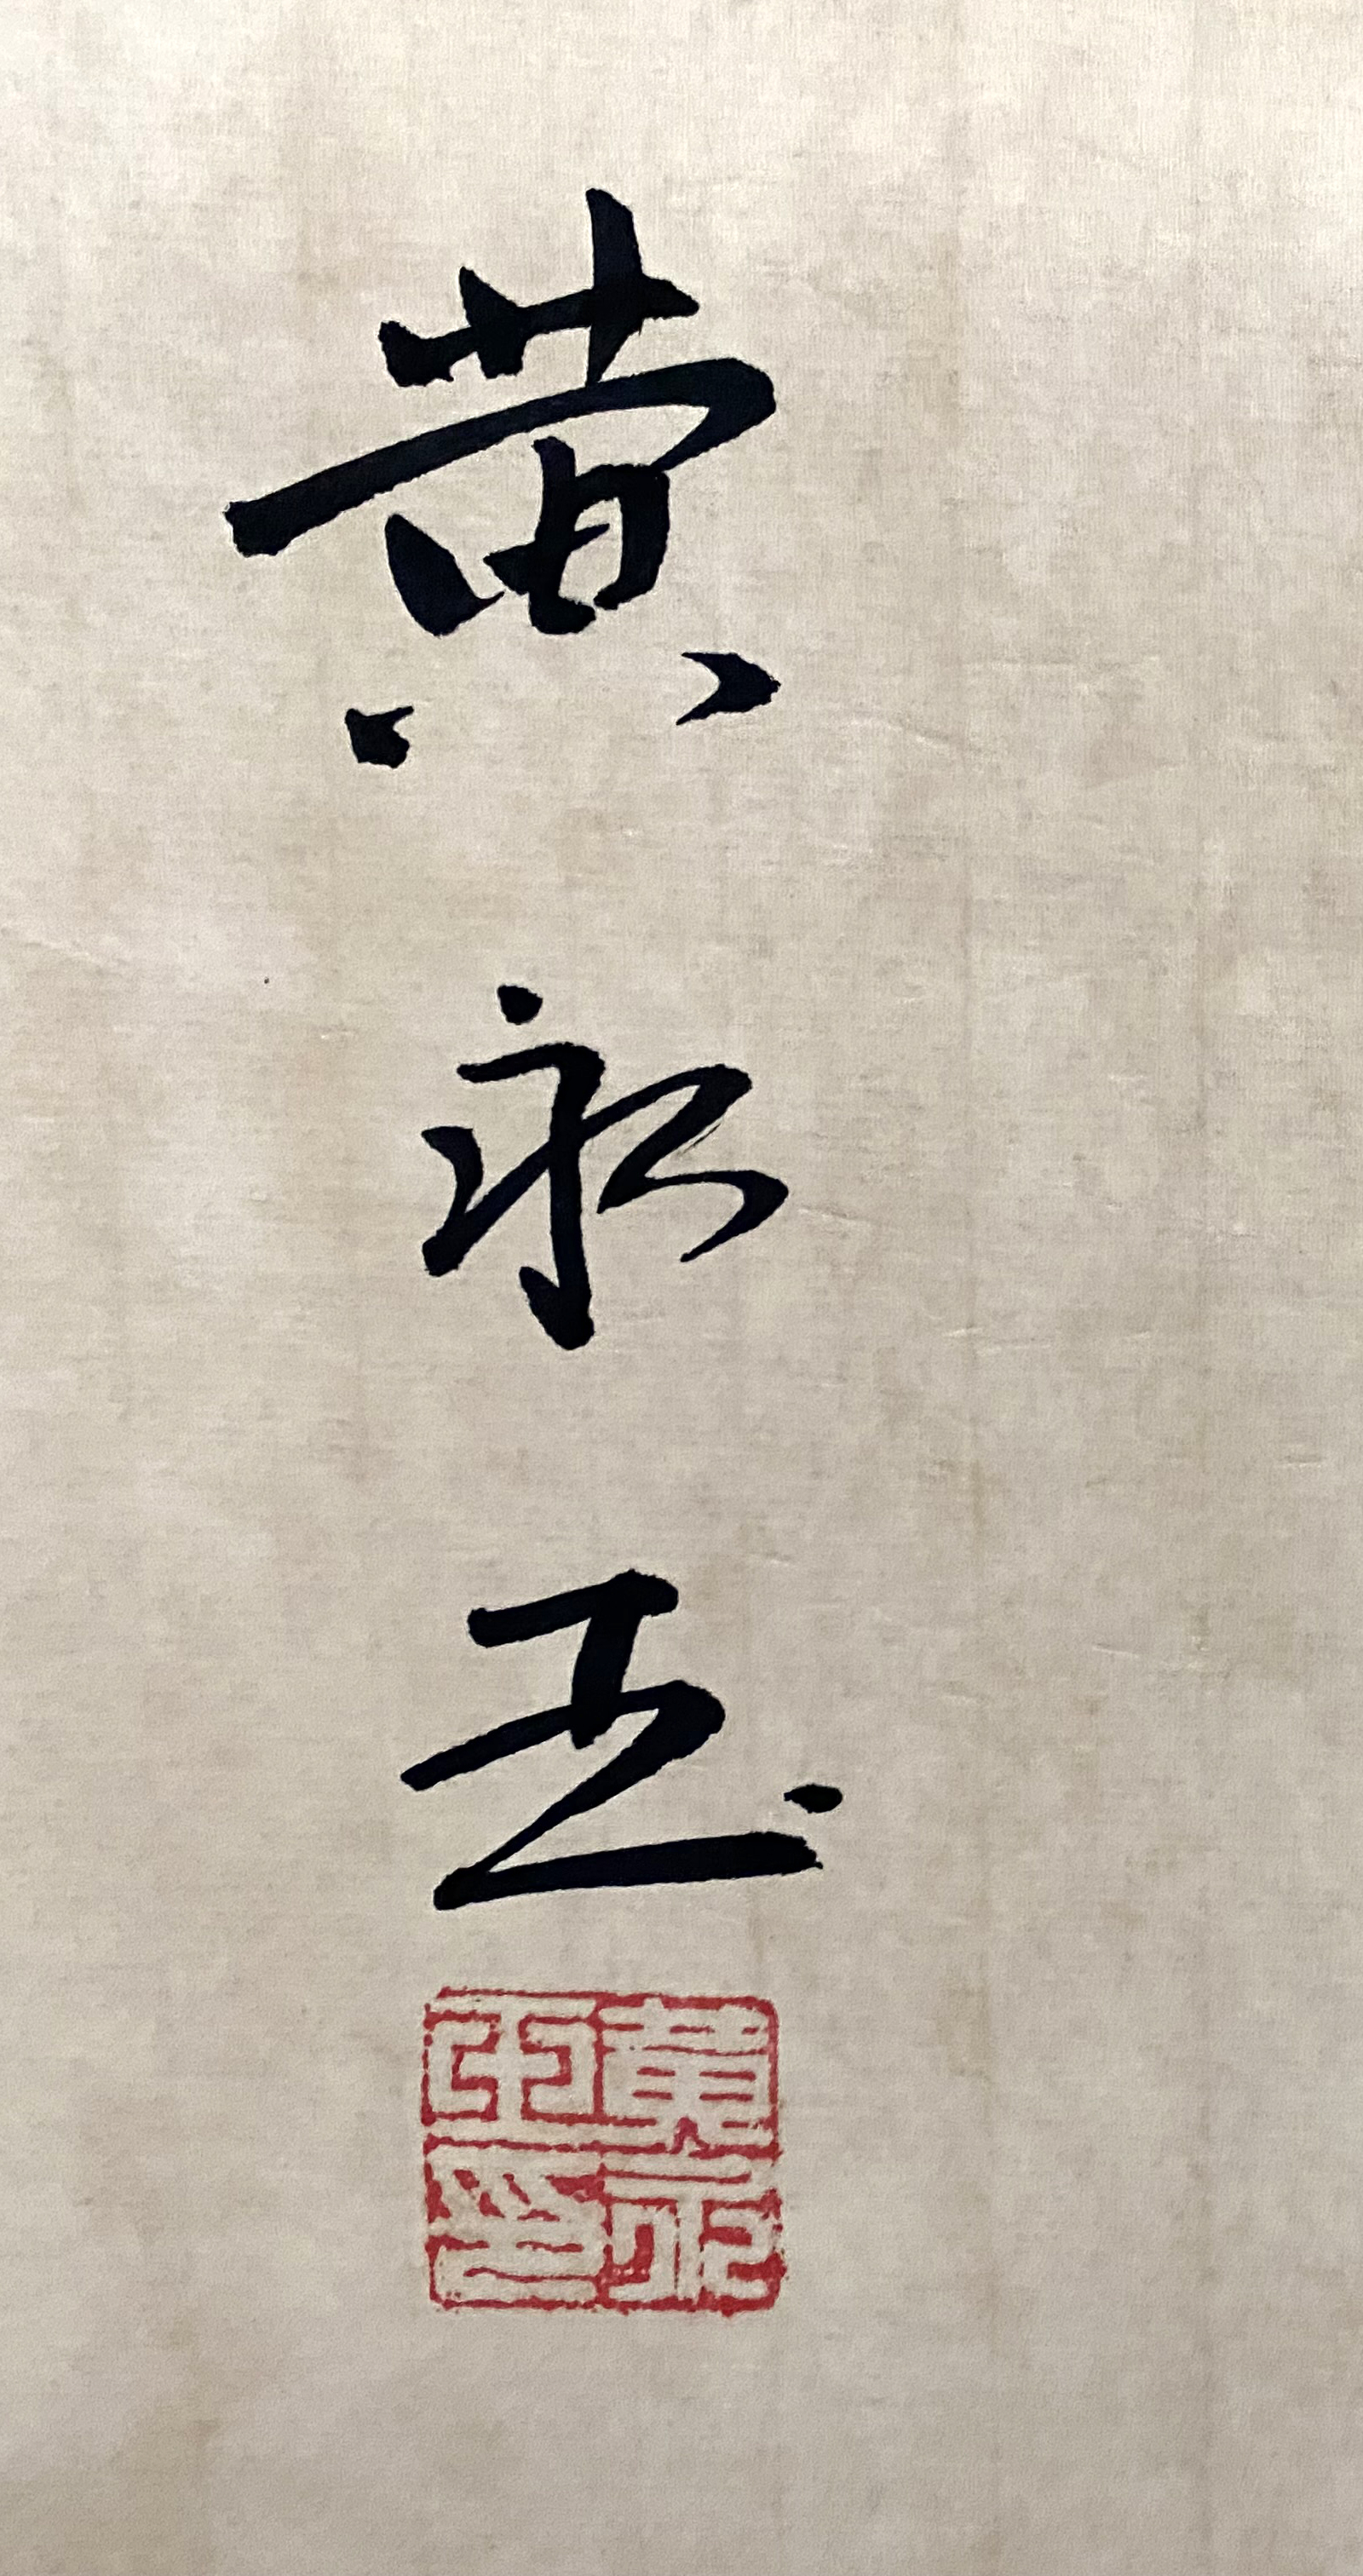 黄永玉
黃永玉印